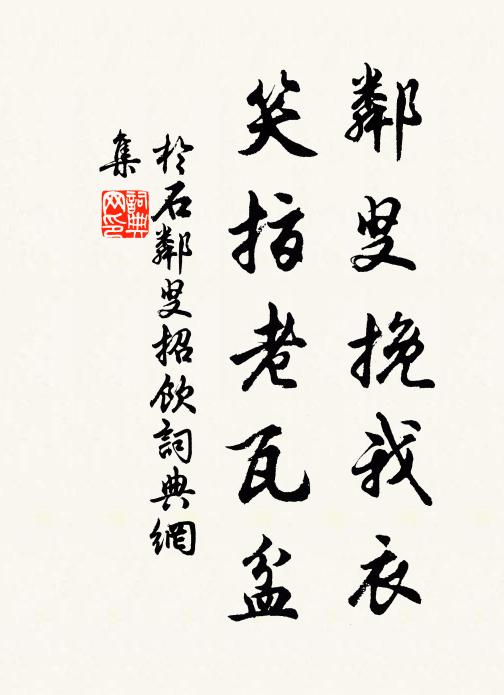 鄰叟挽我衣
笑指老瓦盆
於石鄰叟招飲詞典網
集
詞典
网印